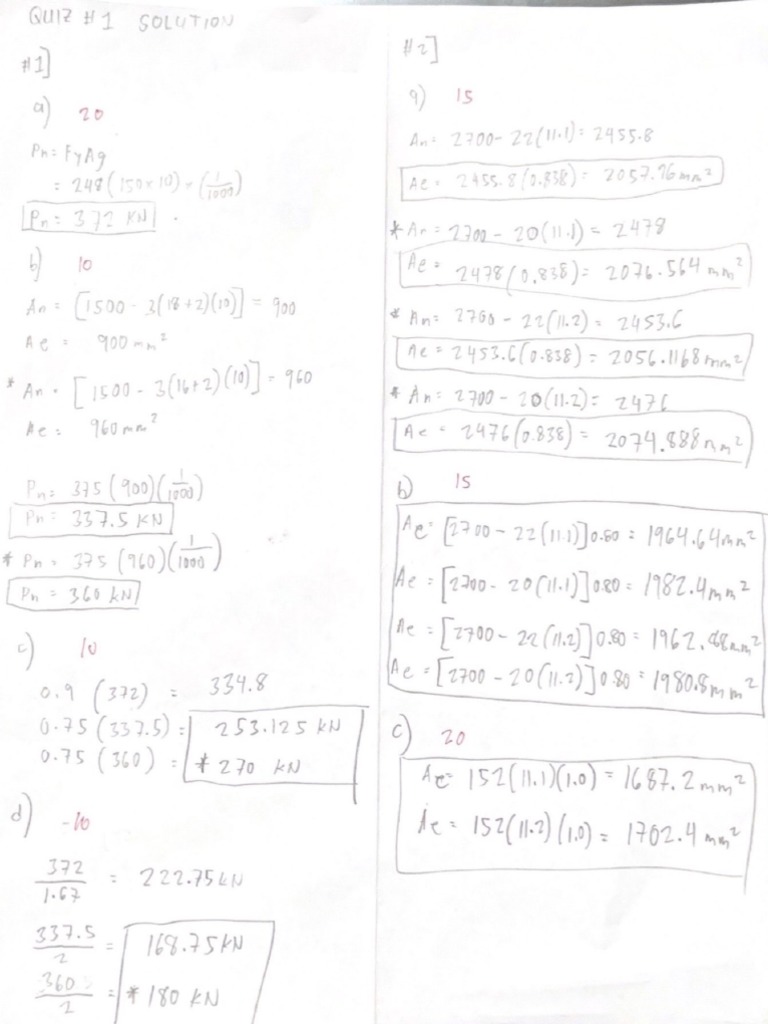 QUIZ #1 SOLUTION
#1]
a) 20
Pn = FyAg
= 248 (150x10) x (1/1000)
Pn = 372 KN
b) 10
An = [1500 - 3(18+2)(10)] = 900
Ae = 900 mm²
* An = [1500 - 3(16+2)(10)] = 960
Ae = 960 mm²
Pn = 375 (900)(1/1000)
Pn = 337.5 KN
* Pn = 375 (960)(1/1000)
Pn = 360 kN
c) 10
0.9 (372) = 334.8
0.75 (337.5) = 253.125 kN
0.75 (360) = * 270 KN
d) -10
372/1.67 = 222.75 KN
337.5/2 = 168.75 KN
360/2 = * 180 KN
#2]
a) 15
An = 2700 - 22(11.1) = 2455.8
Ae = 2455.8 (0.838) = 2057.96 mm²
* An = 2700 - 20(11.1) = 2478
Ae = 2478 (0.838) = 2076.564 mm²
* An = 2700 - 22(11.2) = 2453.6
Ae = 2453.6(0.838) = 2056.1168 mm²
* An = 2700 - 20(11.2) = 2476
Ae = 2476 (0.838) = 2074.888 mm²
b) 15
Ae = [2700 - 22(11.1)] 0.80 = 1964.64 mm²
Ae = [2700 - 20(11.1)] 0.80 = 1982.4 mm²
Ae = [2700 - 22(11.2)] 0.80 = 1962.88 mm²
Ae = [2700 - 20(11.2)] 0.80 = 1980.8 mm²
c) 20
Ae = 152(11.1)(1.0) = 1687.2 mm²
Ae = 152(11.2)(1.0) = 1702.4 mm²